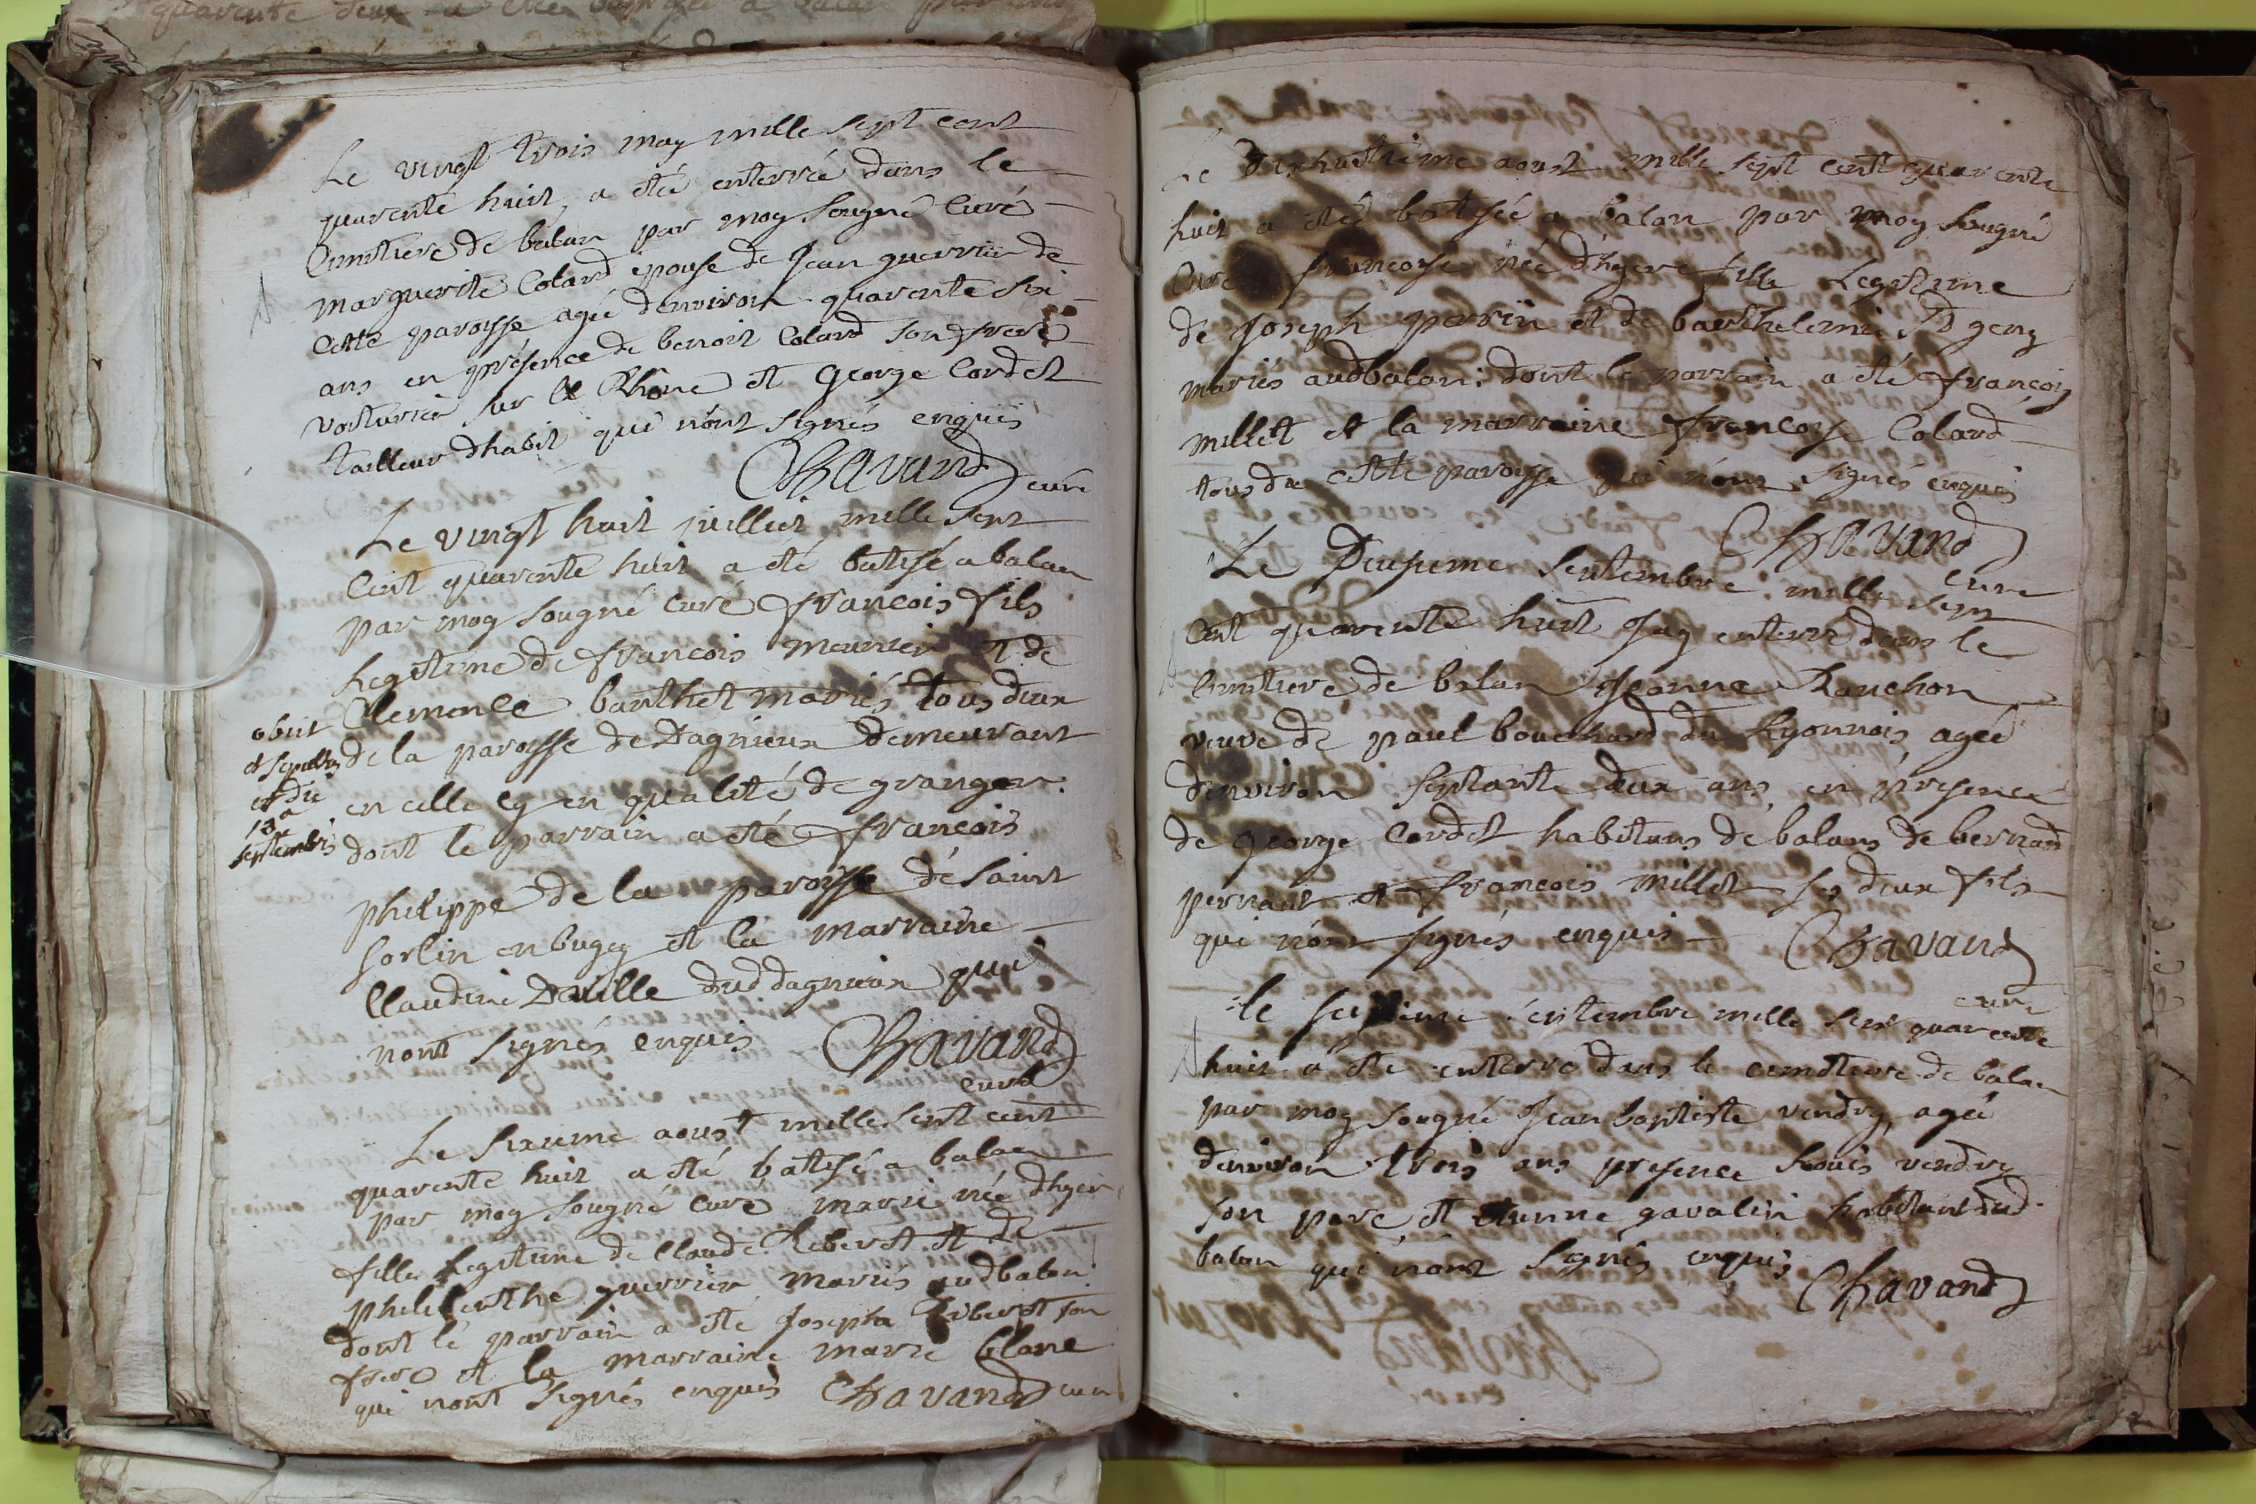 Le vingt trois may mille sept cent
quarente huit, a été enterrée dans le
Cimetiere de balan par moy sougné Curé
marguerite Colard épouse de Jean guerrier de
Cette paroisse agée denviron quarente six
ans en présence de benoit Colard son frere
voiturier sur le Rhône et George Cordet
tailleur dhabit qui n'ont signés enquis
Chavand curé
Le vingt huit juillet mille sept
Cent quarente huit a été batisé a balan
par moy sougné curé francois fils
Legitime de francois meunier et de
Clemence barthet mariés tous deux
de la paroisse de Dagnieux demeurant
en celle cy en qualité de granger.
dont le parrain a été francois
philippe de la paroisse de saint
sorlin en bugey et la marraine
Claudine Deville dud dagnieux qui
nont signés enquis Chavand
curé
obiit
et sepultus
est die
13a
septembris
Le sixieme aoust mille sept cent
quarente huit a été batisé a balan
par moy sougné curé marie née dhyer
fille Legitime de Claude Ribert et de
philiberthe guerrier mariés aud balan
dont le parrain a été Joseph Ribert son
frere et la marraine marie Clane
qui nont signés enquis Chavand curé
Le dixhuitieme aoust mille sept cent quarente
huit a été batisée a balan par moy sougné
Curé francoise née d'hyere fille Legitime
de Joseph perrin et de barthelemie
mariés aud balan; dont le parrain a été francois
millet et la marraine francoise Colard
tous de cette paroisse qui n'ont signés enquis
Chavand
curé
Le Deusieme septembre mille sept
Cent quarente huit Jay enterré dans le
Cimetiere de balan Jeanne Ranchon
veuve de paul bouchard du Lyonnois agée
denviron septante deux ans en présence
de George Cordet habitans de balans de bernard
pernaut et francois millet ses deux fils
qui n'ont signés enquis Chavand
curé
le septieme septembre mille sept quarente
huit a été enterré dans le cimetiere de balan
par moy sougné Jean baptiste vendry, agée
denviron trois ans presence Louis vendry
son pere et etienne gavalin habitant dud
balan qui n'ont signés enquis
Chavand